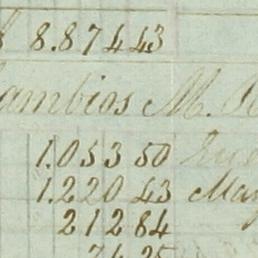 8.874 43
ambios M.
1.053 50
1.220 43 May
212 84